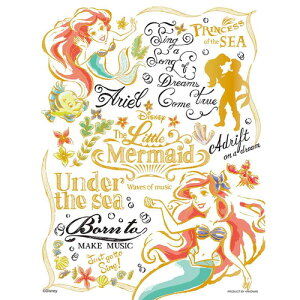 Sing
a
Song
of
Dreams
Come True
PRINCESS
of the SEA
Ariel
Disney
The Little
Mermaid
Waves of music
Adrift
on a dream
Under
the sea
Born to
MAKE MUSIC
Just gotta
Sing!
©Disney